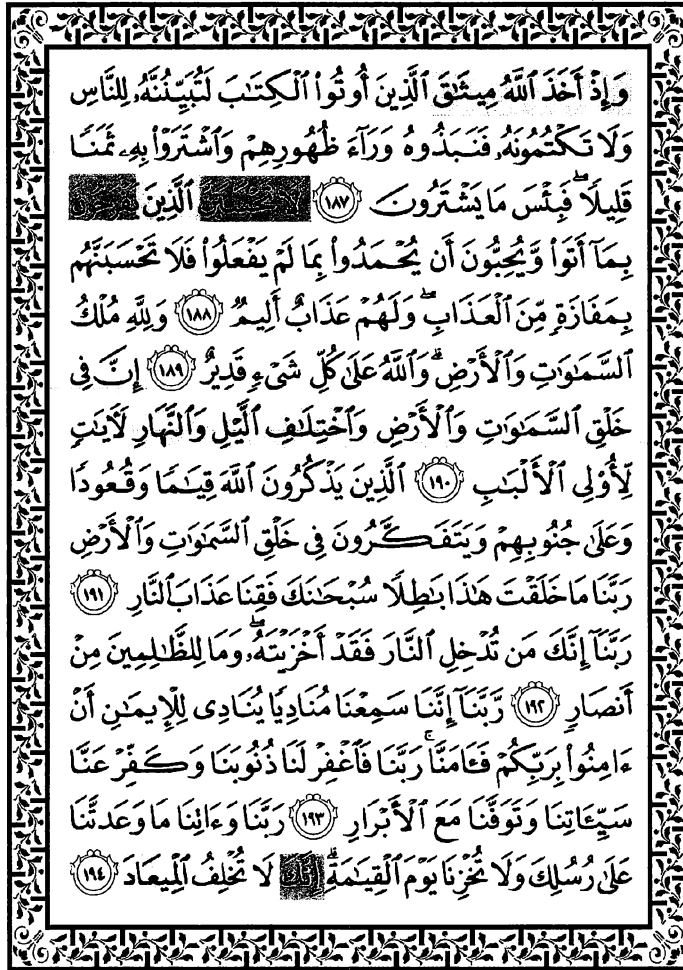 وَإِذْ أَخَذَ ٱللَّهُ مِيثَٰقَ ٱلَّذِينَ أُوتُوا۟ ٱلْكِتَٰبَ لَتُبَيِّنُنَّهُۥ لِلنَّاسِ
وَلَا تَكْتُمُونَهُۥ فَنَبَذُوهُ وَرَآءَ ظُهُورِهِمْ وَٱشْتَرَوْا۟ بِهِۦ ثَمَنًا
قَلِيلًا ۖ فَبِئْسَ مَا يَشْتَرُونَ ١٨٧ ٱلَّذِينَ
بِمَآ أَتَوا۟ وَّيُحِبُّونَ أَن يُحْمَدُوا۟ بِمَا لَمْ يَفْعَلُوا۟ فَلَا تَحْسَبَنَّهُم
بِمَفَازَةٍ مِّنَ ٱلْعَذَابِ ۖ وَلَهُمْ عَذَابٌ أَلِيمٌ ١٨٨ وَلِلَّهِ مُلْكُ
ٱلسَّمَٰوَٰتِ وَٱلْأَرْضِ ۗ وَٱللَّهُ عَلَىٰ كُلِّ شَىْءٍ قَدِيرٌ ١٨٩ إِنَّ فِى
خَلْقِ ٱلسَّمَٰوَٰتِ وَٱلْأَرْضِ وَٱخْتِلَٰفِ ٱلَّيْلِ وَٱلنَّهَارِ لَءَايَٰتٍ
لِّأُو۟لِى ٱلْأَلْبَٰبِ ١٩٠ ٱلَّذِينَ يَذْكُرُونَ ٱللَّهَ قِيَٰمًا وَقُعُودًا
وَعَلَىٰ جُنُوبِهِمْ وَيَتَفَكَّرُونَ فِى خَلْقِ ٱلسَّمَٰوَٰتِ وَٱلْأَرْضِ
رَبَّنَا مَا خَلَقْتَ هَٰذَا بَٰطِلًا سُبْحَٰنَكَ فَقِنَا عَذَابَ ٱلنَّارِ ١٩١
رَبَّنَآ إِنَّكَ مَن تُدْخِلِ ٱلنَّارَ فَقَدْ أَخْزَيْتَهُۥ ۖ وَمَا لِلظَّٰلِمِينَ مِنْ
أَنصَارٍ ١٩٢ رَّبَّنَآ إِنَّنَا سَمِعْنَا مُنَادِيًا يُنَادِى لِلْإِيمَٰنِ أَنْ
ءَامِنُوا۟ بِرَبِّكُمْ فَـَٔامَنَّا ۚ رَبَّنَا فَٱغْفِرْ لَنَا ذُنُوبَنَا وَكَفِّرْ عَنَّا
سَيِّـَٔاتِنَا وَتَوَفَّنَا مَعَ ٱلْأَبْرَارِ ١٩٣ رَبَّنَا وَءَاتِنَا مَا وَعَدتَّنَا
عَلَىٰ رُسُلِكَ وَلَا تُخْزِنَا يَوْمَ ٱلْقِيَٰمَةِ ۗ إِنَّكَ لَا تُخْلِفُ ٱلْمِيعَادَ ١٩٤